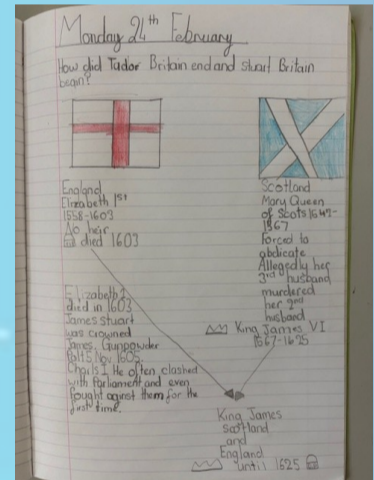 Monday 24th February
How did Tudor Britain end and stuart Britain
begin?
England
Elizabeth 1st
1558-1603
No heir
died 1603
Scotland
Mary Queen
of Scots 1542-
1567
Forced to
abdicate
Allegedly her
3rd husband
murdered
her 2nd
husband
King James VI
1567-1625
Elizabeth I
died in 1603
James Stuart
was crowned
James. Gunpowder
Plot 5 Nov 1605.
Charls I He often clashed
with Parliament and even
fought against them for the
first time.
King James
scotland
and
England
until 1625